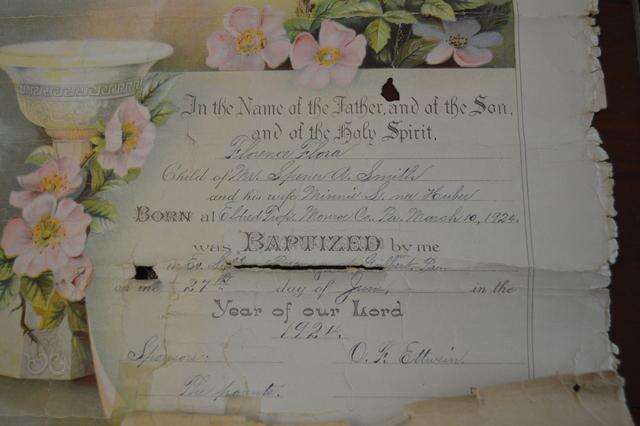 In the Name of the Father, and of the Son,
and of the Holy Spirit,
Florence Flora
Child of Mr. Spencer A. Smith
and his wife Minnie S. nee Huber
BORN at Eldred Twp. Monroe Co. Pa. March 10, 1924.
was BAPTIZED by me
Gilbert, Pa.
on the 27th day of June, in the
Year of our Lord
1924.
Sponsors: O. F. Ettwein
The parents.